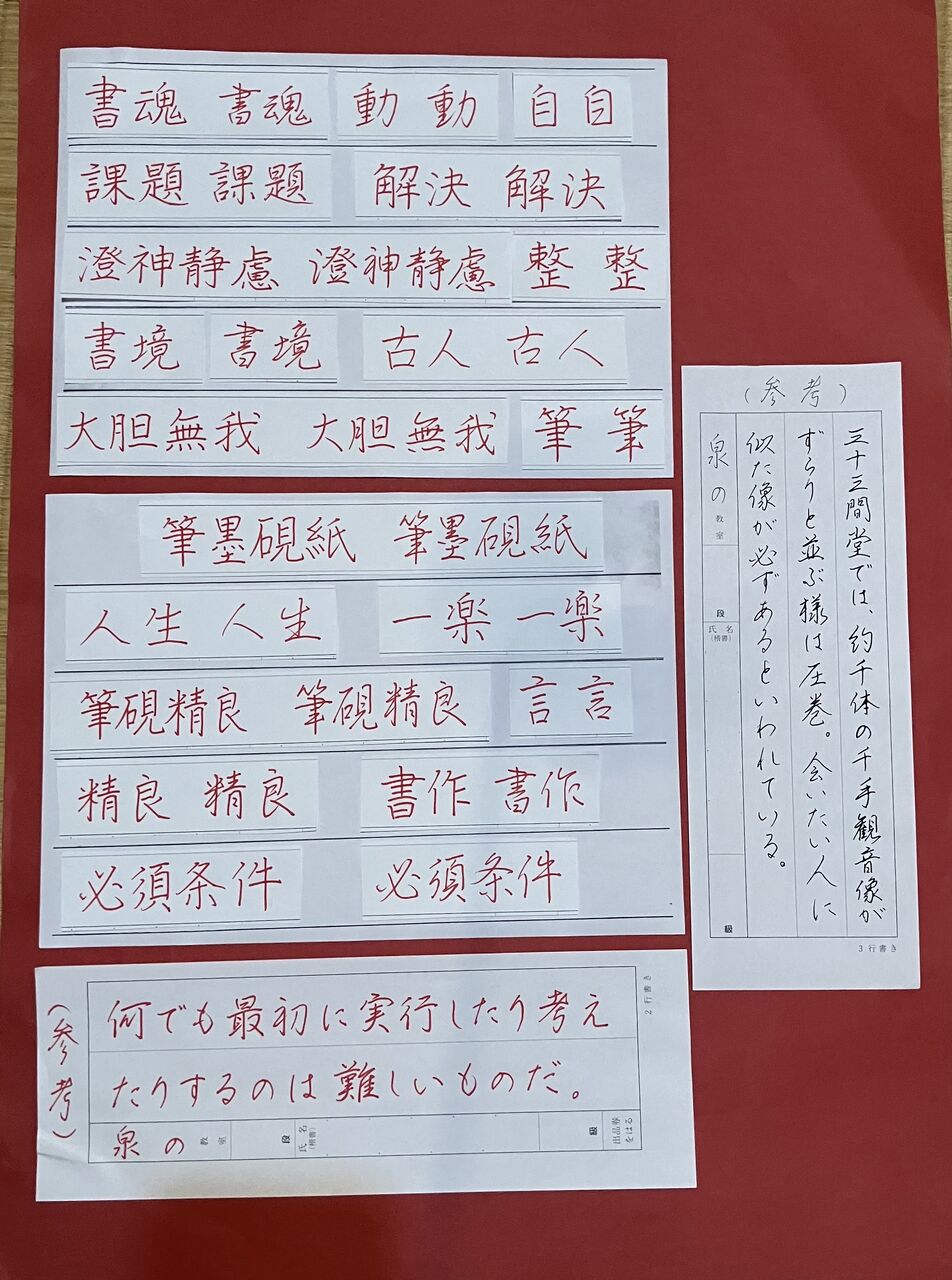 書魂 書魂 動 動 自 自
課題 課題 解決 解決
澄神静慮 澄神静慮 整 整
書境 書境 古人 古人
大胆無我 大胆無我 筆 筆
筆墨硯紙 筆墨硯紙
人生 人生 一楽 一楽
筆硯精良 筆硯精良 言 言
精良 精良 書作 書作
必須条件 必須条件
(参考)
三十三間堂では、約千体の千手観音像が
ずらりと並ぶ様は圧巻。会いたい人に
似た像が必ずあるといわれている。
泉の 教室 段 氏名 (楷書) 級
3行書き
(参考)
2行書き
何でも最初に実行したり考え
たりするのは難しいものだ。
泉の 教室 段 氏名 (楷書) 級 出品券をはる